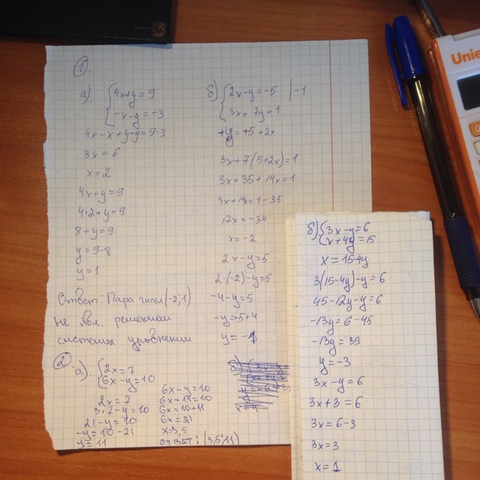 1.
а) { 4x+y=9
-x-y=-3
4x-x+y-y=9-3
3x=6
x=2
4x+y=9
4·2+y=9
8+y=9
y=9-8
y=1
Ответ: Пара чисел (-2;1)
не явл. решением
системы уравнении
б) { 2x-y=-5 |-1
3x+7y=1
y=+5+2x
3x+7(5+2x)=1
3x+35+14x=1
3x+14x=1-35
17x=-34
x=-2
2x-y=5
2·(-2)-y=5
-4-y=5
-y=5+4
y=-1
2
а) { 2x=7
6x-y=10
2x=7
3·7-y=10
21-y=10
-y=10-21
y=11
6x-y=10
6x-11=10
6x=10+11
6x=21
x=3,5
ответ: (3,5;11)
б) { 3x-y=6
x+4y=15
x=15-4y
3(15-4y)-y=6
45-12y-y=6
-13y=6-45
-13y=39
y=-3
3x-y=6
3x+3=6
3x=6-3
3x=3
x=1
Unie